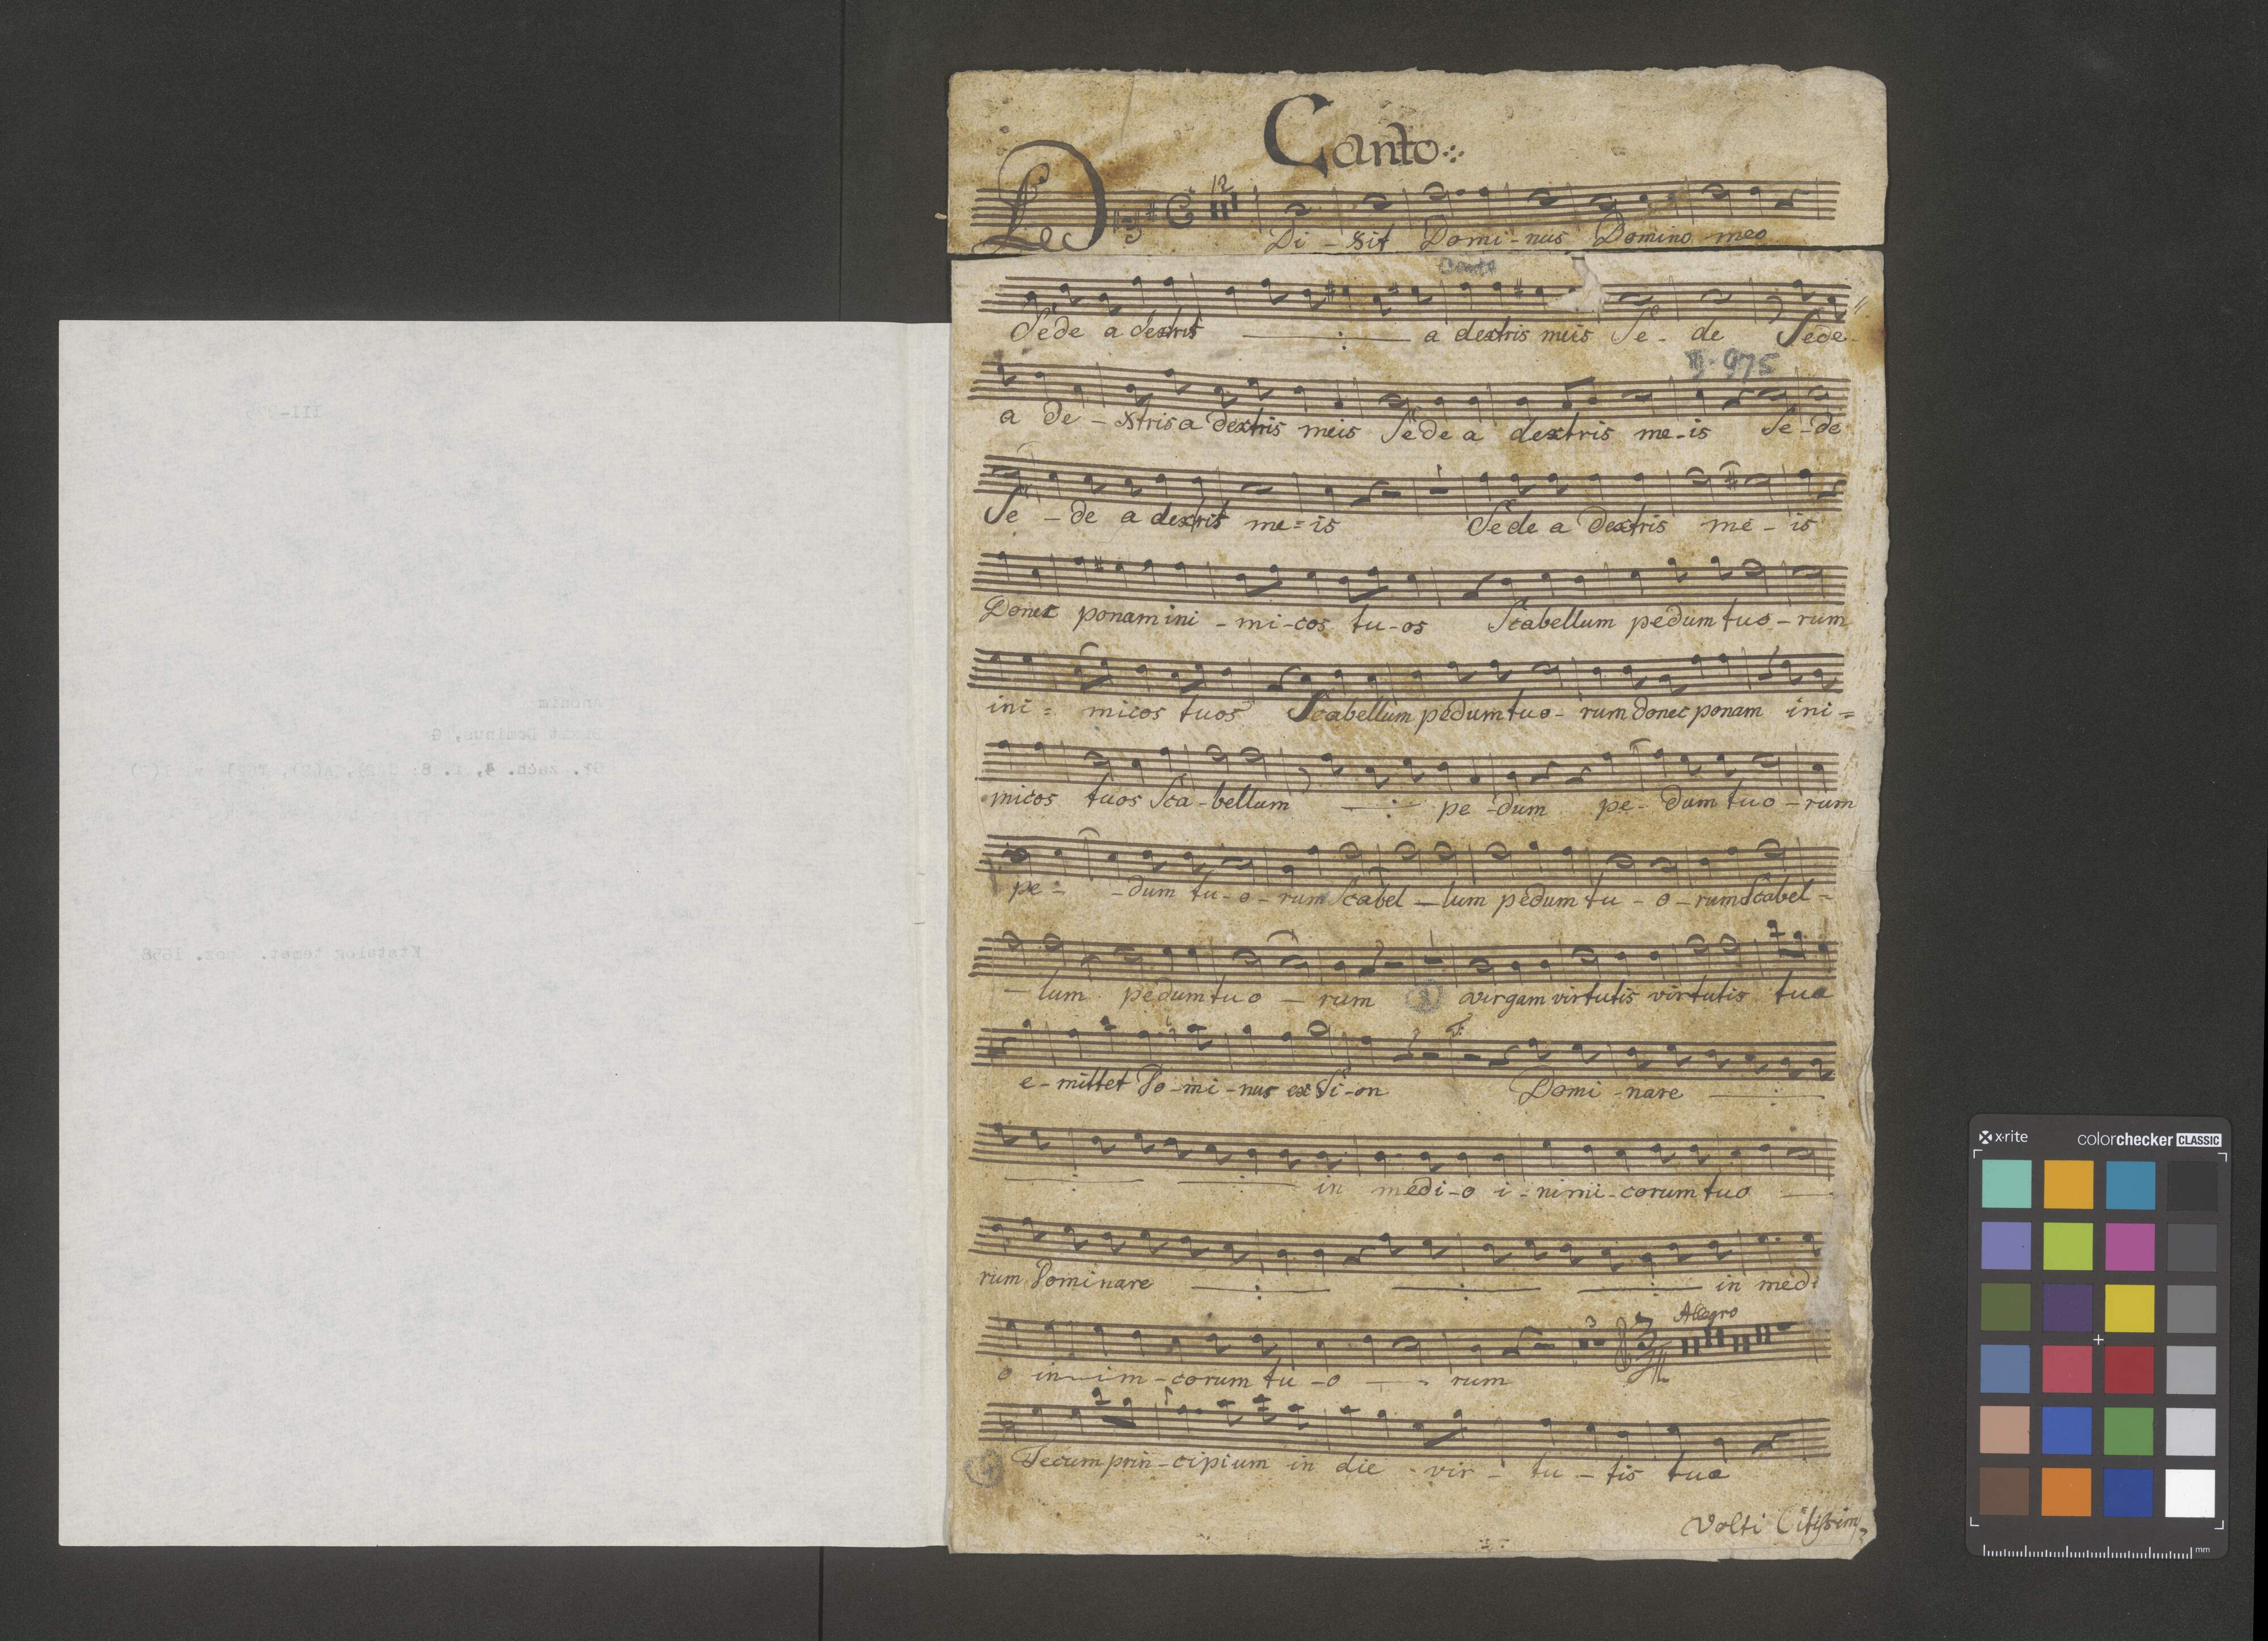 Canto
12
Di - xit Domi - nus Domino meo
Canto
Sede a dextris a dextris meis Se - de Sede
III-975
a de - xtris a dextris meis Sede a dextris me - is Se - de
Se - de a dextris me = is Sede a dextris me - is
Donec ponam ini - mi - cos tu - os Scabellum pedum tuo - rum
ini = micos tuos Scabellum pedum tuo - rum donec ponam ini =
micos tuos Sca - bellum pe - dum pe - dum tuo - rum
pe - - dum tu - o - rum Scabel - lum pedum tu - o - rum Scabel =
- lum pedum tuo - rum virgam virtutis virtutis tuæ
e - mittet Do - mi - nus ex Si - on Domi - nare
in medi - o i - nimi - corum tuo
rum Dominare in medi
3 Allegro
o inim - corum tu - o - rum
Tecum prin - cipium in die vir - tu - tis tuæ
Volti Citissim
III-975
Anonim
Dixit Dominus, G
Katalog temat. poz. 1658
x-rite colorchecker CLASSIC
mm